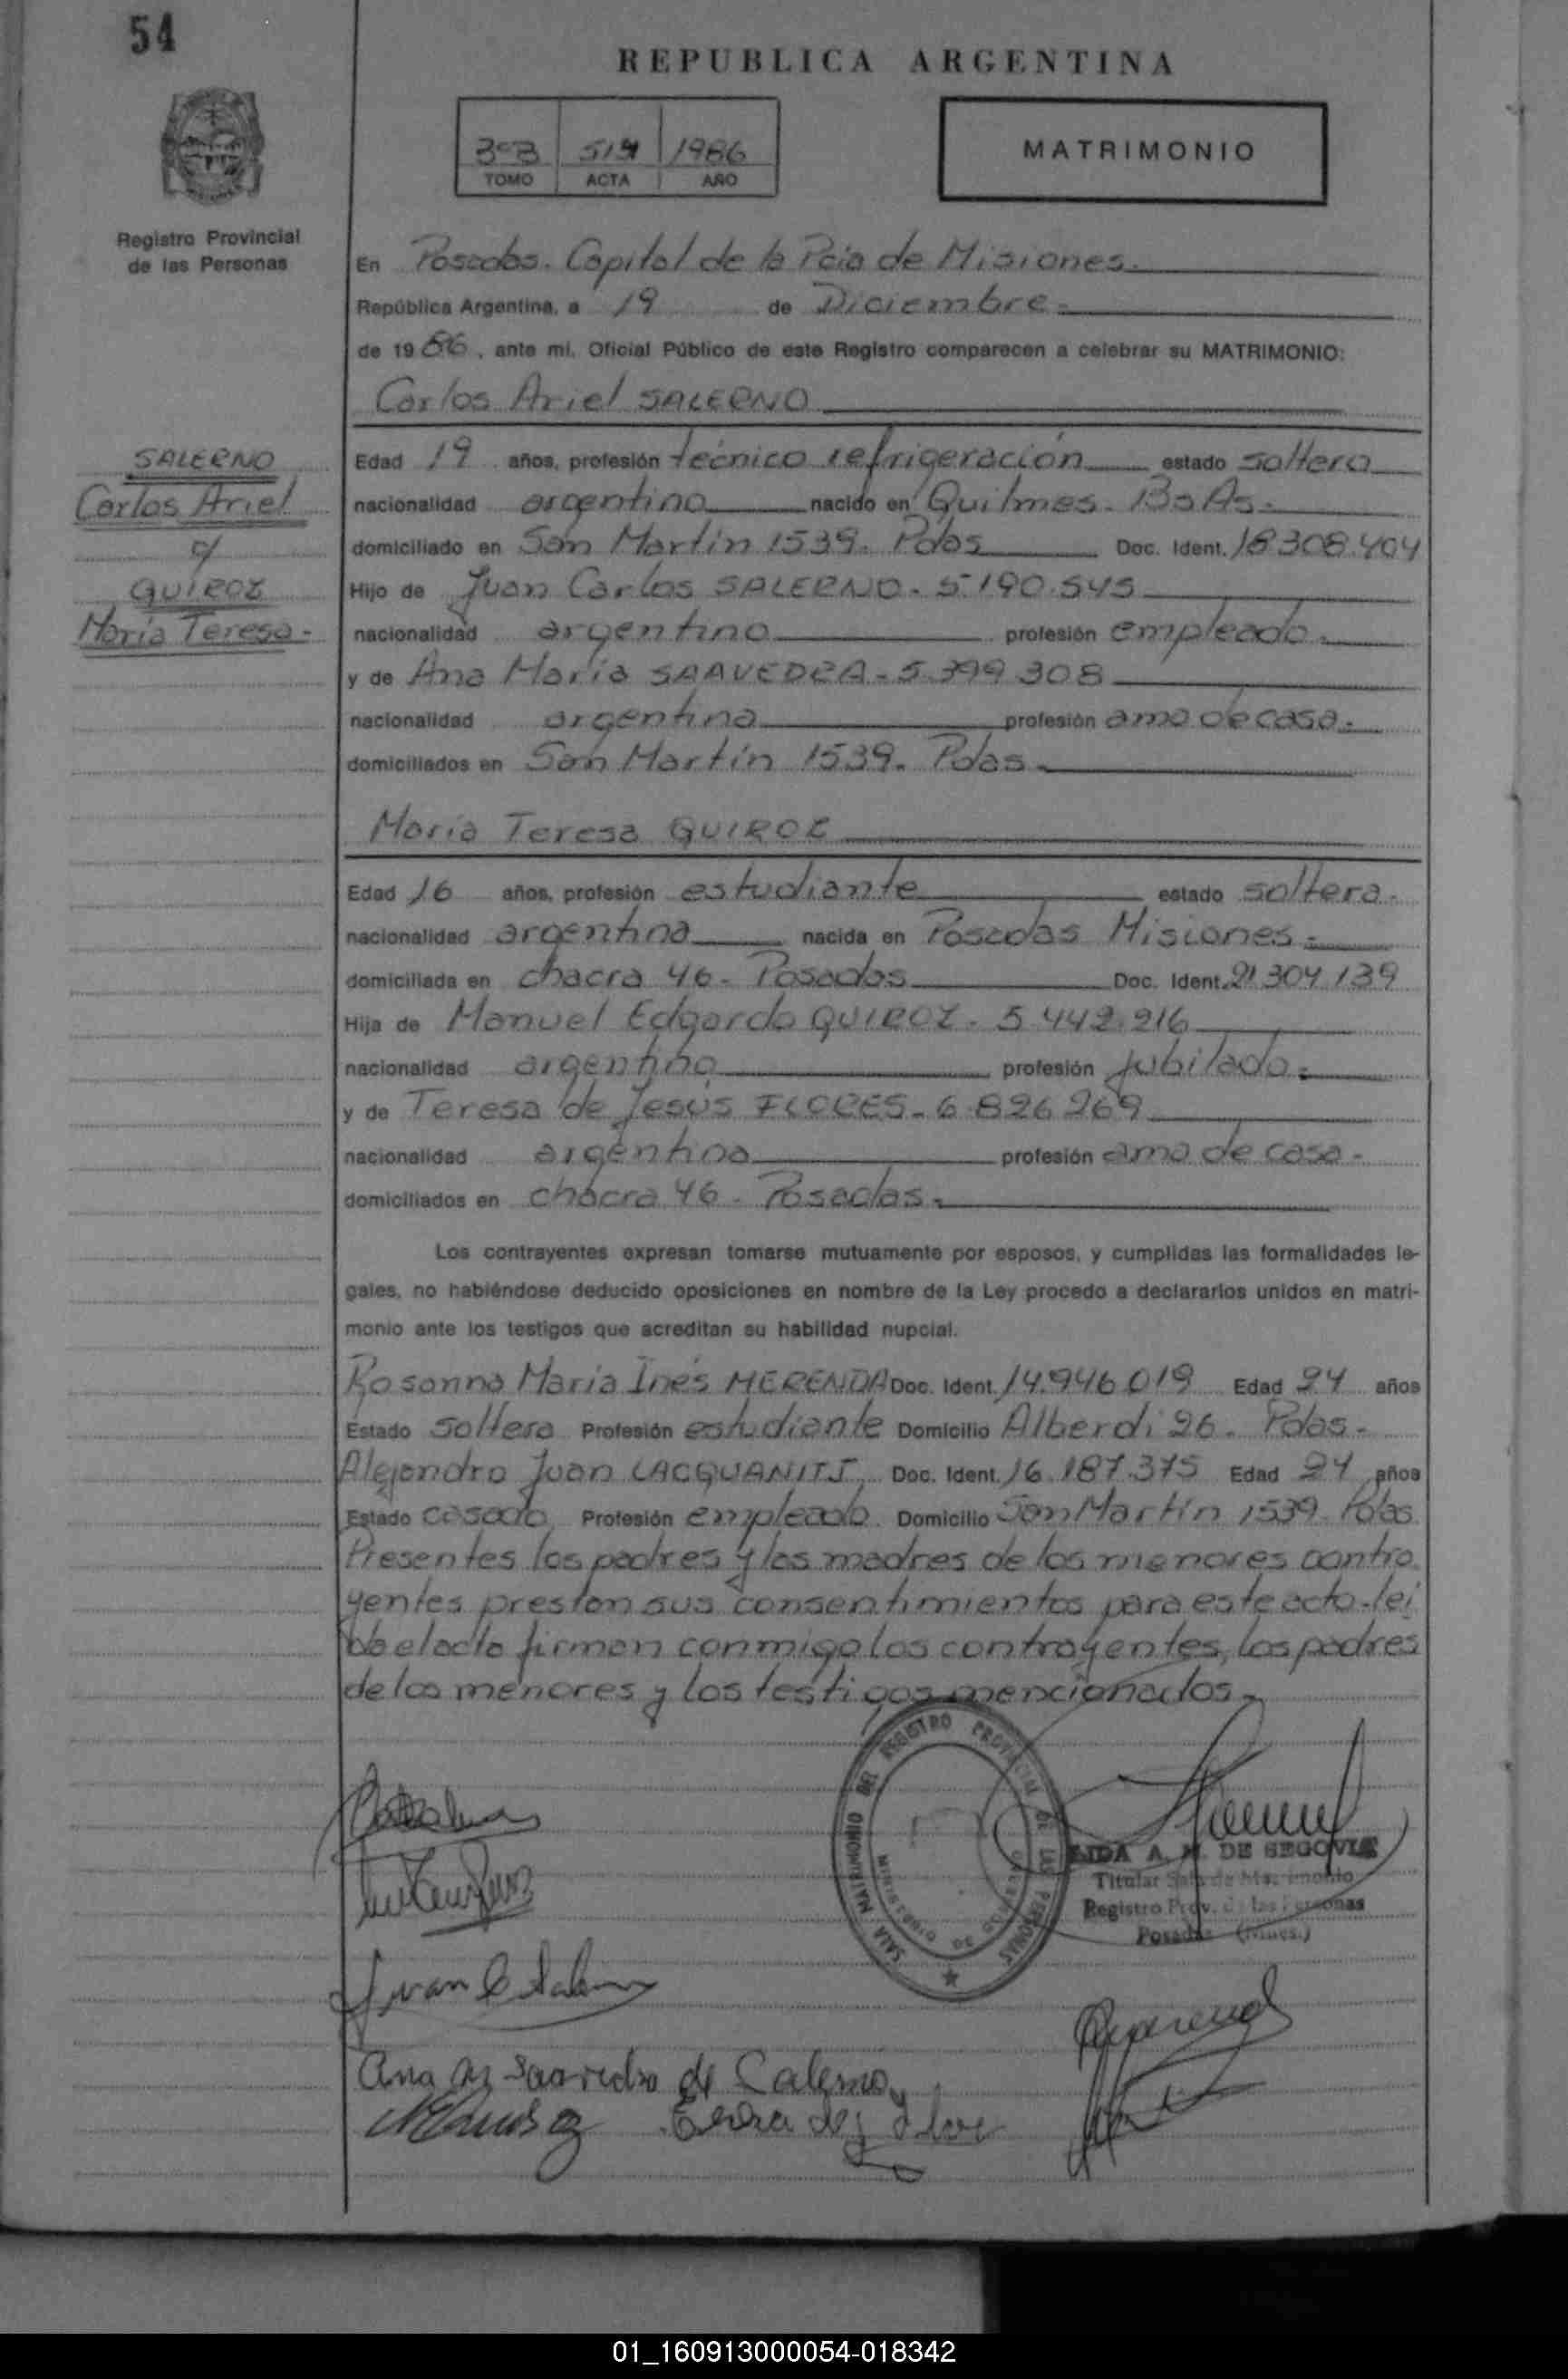 54
REPUBLICA ARGENTINA
3ºB 1986
TOMO ACTA AÑO
MATRIMONIO
Registro Provincial
de las Personas
En Posadas. Capital de la Pcia de Misiones.
República Argentina, a 19 de Diciembre.
de 1986, ante mi, Oficial Público de este Registro comparecen a celebrar su MATRIMONIO:
Carlos Ariel SALERNO
SALERNO
Carlos Ariel
c/
QUIROZ
María Teresa.
Edad 19 años, profesión técnico refrigeración estado soltero
nacionalidad argentino nacido en Quilmes. Bs As.
domiciliado en San Martín 1539. Pdas Doc. Ident. 18308.404
Hijo de Juan Carlos SALERNO. 5.190.545
nacionalidad argentino profesión empleado.
y de Ana María SAAVEDRA. 5.399.308
nacionalidad argentina profesión ama de casa.
domiciliados en San Martín 1539. Pdas.
María Teresa QUIROZ
Edad 16 años, profesión estudiante estado soltera.
nacionalidad argentina nacida en Posadas Misiones.
domiciliada en chacra 46. Posadas Doc. Ident. 21.304.139
Hija de Manuel Edgardo QUIROZ. 5.442.216
nacionalidad argentino profesión jubilado.
y de Teresa de Jesús FLORES. 6.826.269
nacionalidad argentina profesión ama de casa.
domiciliados en chacra 46. Posadas.
Los contrayentes expresan tomarse mutuamente por esposos, y cumplidas las formalidades le-
gales, no habiéndose deducido oposiciones en nombre de la Ley procedo a declararlos unidos en matri-
monio ante los testigos que acreditan su habilidad nupcial.
Rosanna María Inés MERENDA Doc. Ident. 14.946.019 Edad 24 años
Estado soltera Profesión estudiante Domicilio Alberdi 26. Pdas.
Alejandro Juan LACQUANITI Doc. Ident. 16.187.375 Edad 24 años
Estado casado Profesión empleado. Domicilio San Martín 1539. Pdas.
Presentes los padres y las madres de los menores contra
yentes prestan sus consentimientos para este acto. leí
do el acta firman conmigo los contrayentes, los padres
de los menores y los testigos mencionados.
SALA MATRIMONIO DEL REGISTRO PROVINCIAL DE LAS PERSONAS
LIDA A. M. DE SEGOVIA
Titular Sala de Matrimonio
Registro Prov. de las Personas
Posadas (Mnes.)
Juan C Salerno
Ana M Saavedra de Salerno
Teresa de J Flores
01_160913000054-018342